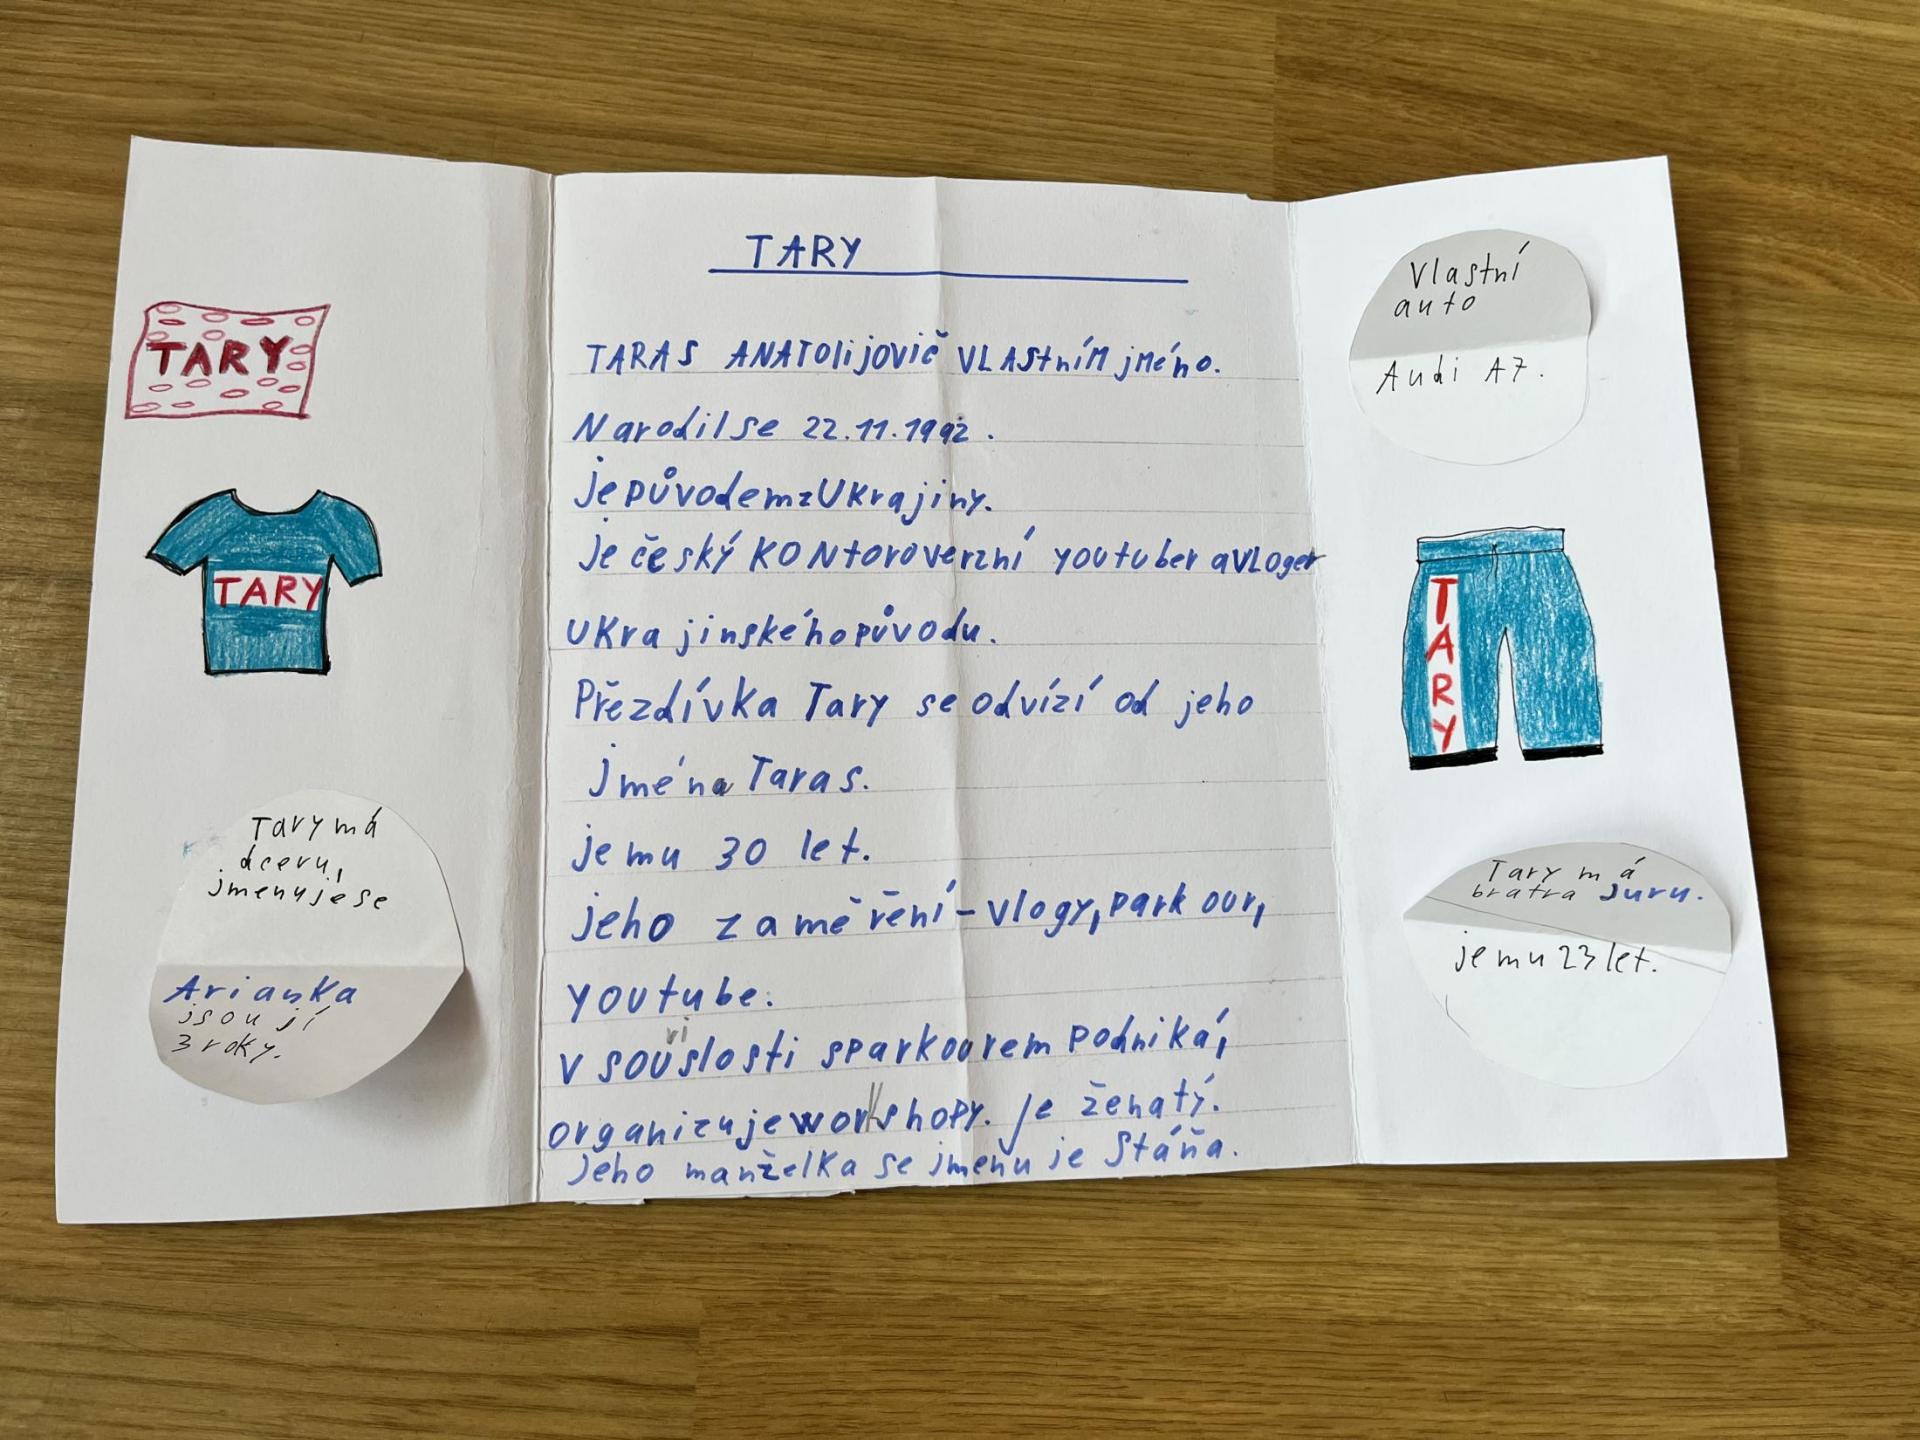 TARY
TARY
TARY má
dceru,
jmenuje se
Arianka
jsou jí
3 roky.
TARY
TARAS ANATOlijovič VLAStníM jMéno.
Narodil se 22.11.1992.
je původem z UKrajiny.
je český KONtoroverzní youtuber a VLoger
UKrajinského původu.
Přezdívka Tary se odvízí od jeho
jména Taras.
je mu 30 let.
jeho zaměření - vlogy, parkour,
youtube.
v souvislosti s parkourem podniká,
organizuje workshopy. je ženatý.
jeho manželka se jmenuje Stáňa.
Vlastní
auto
Audi A7.
TARY
Tary má
bratra Juru.
je mu 23 let.